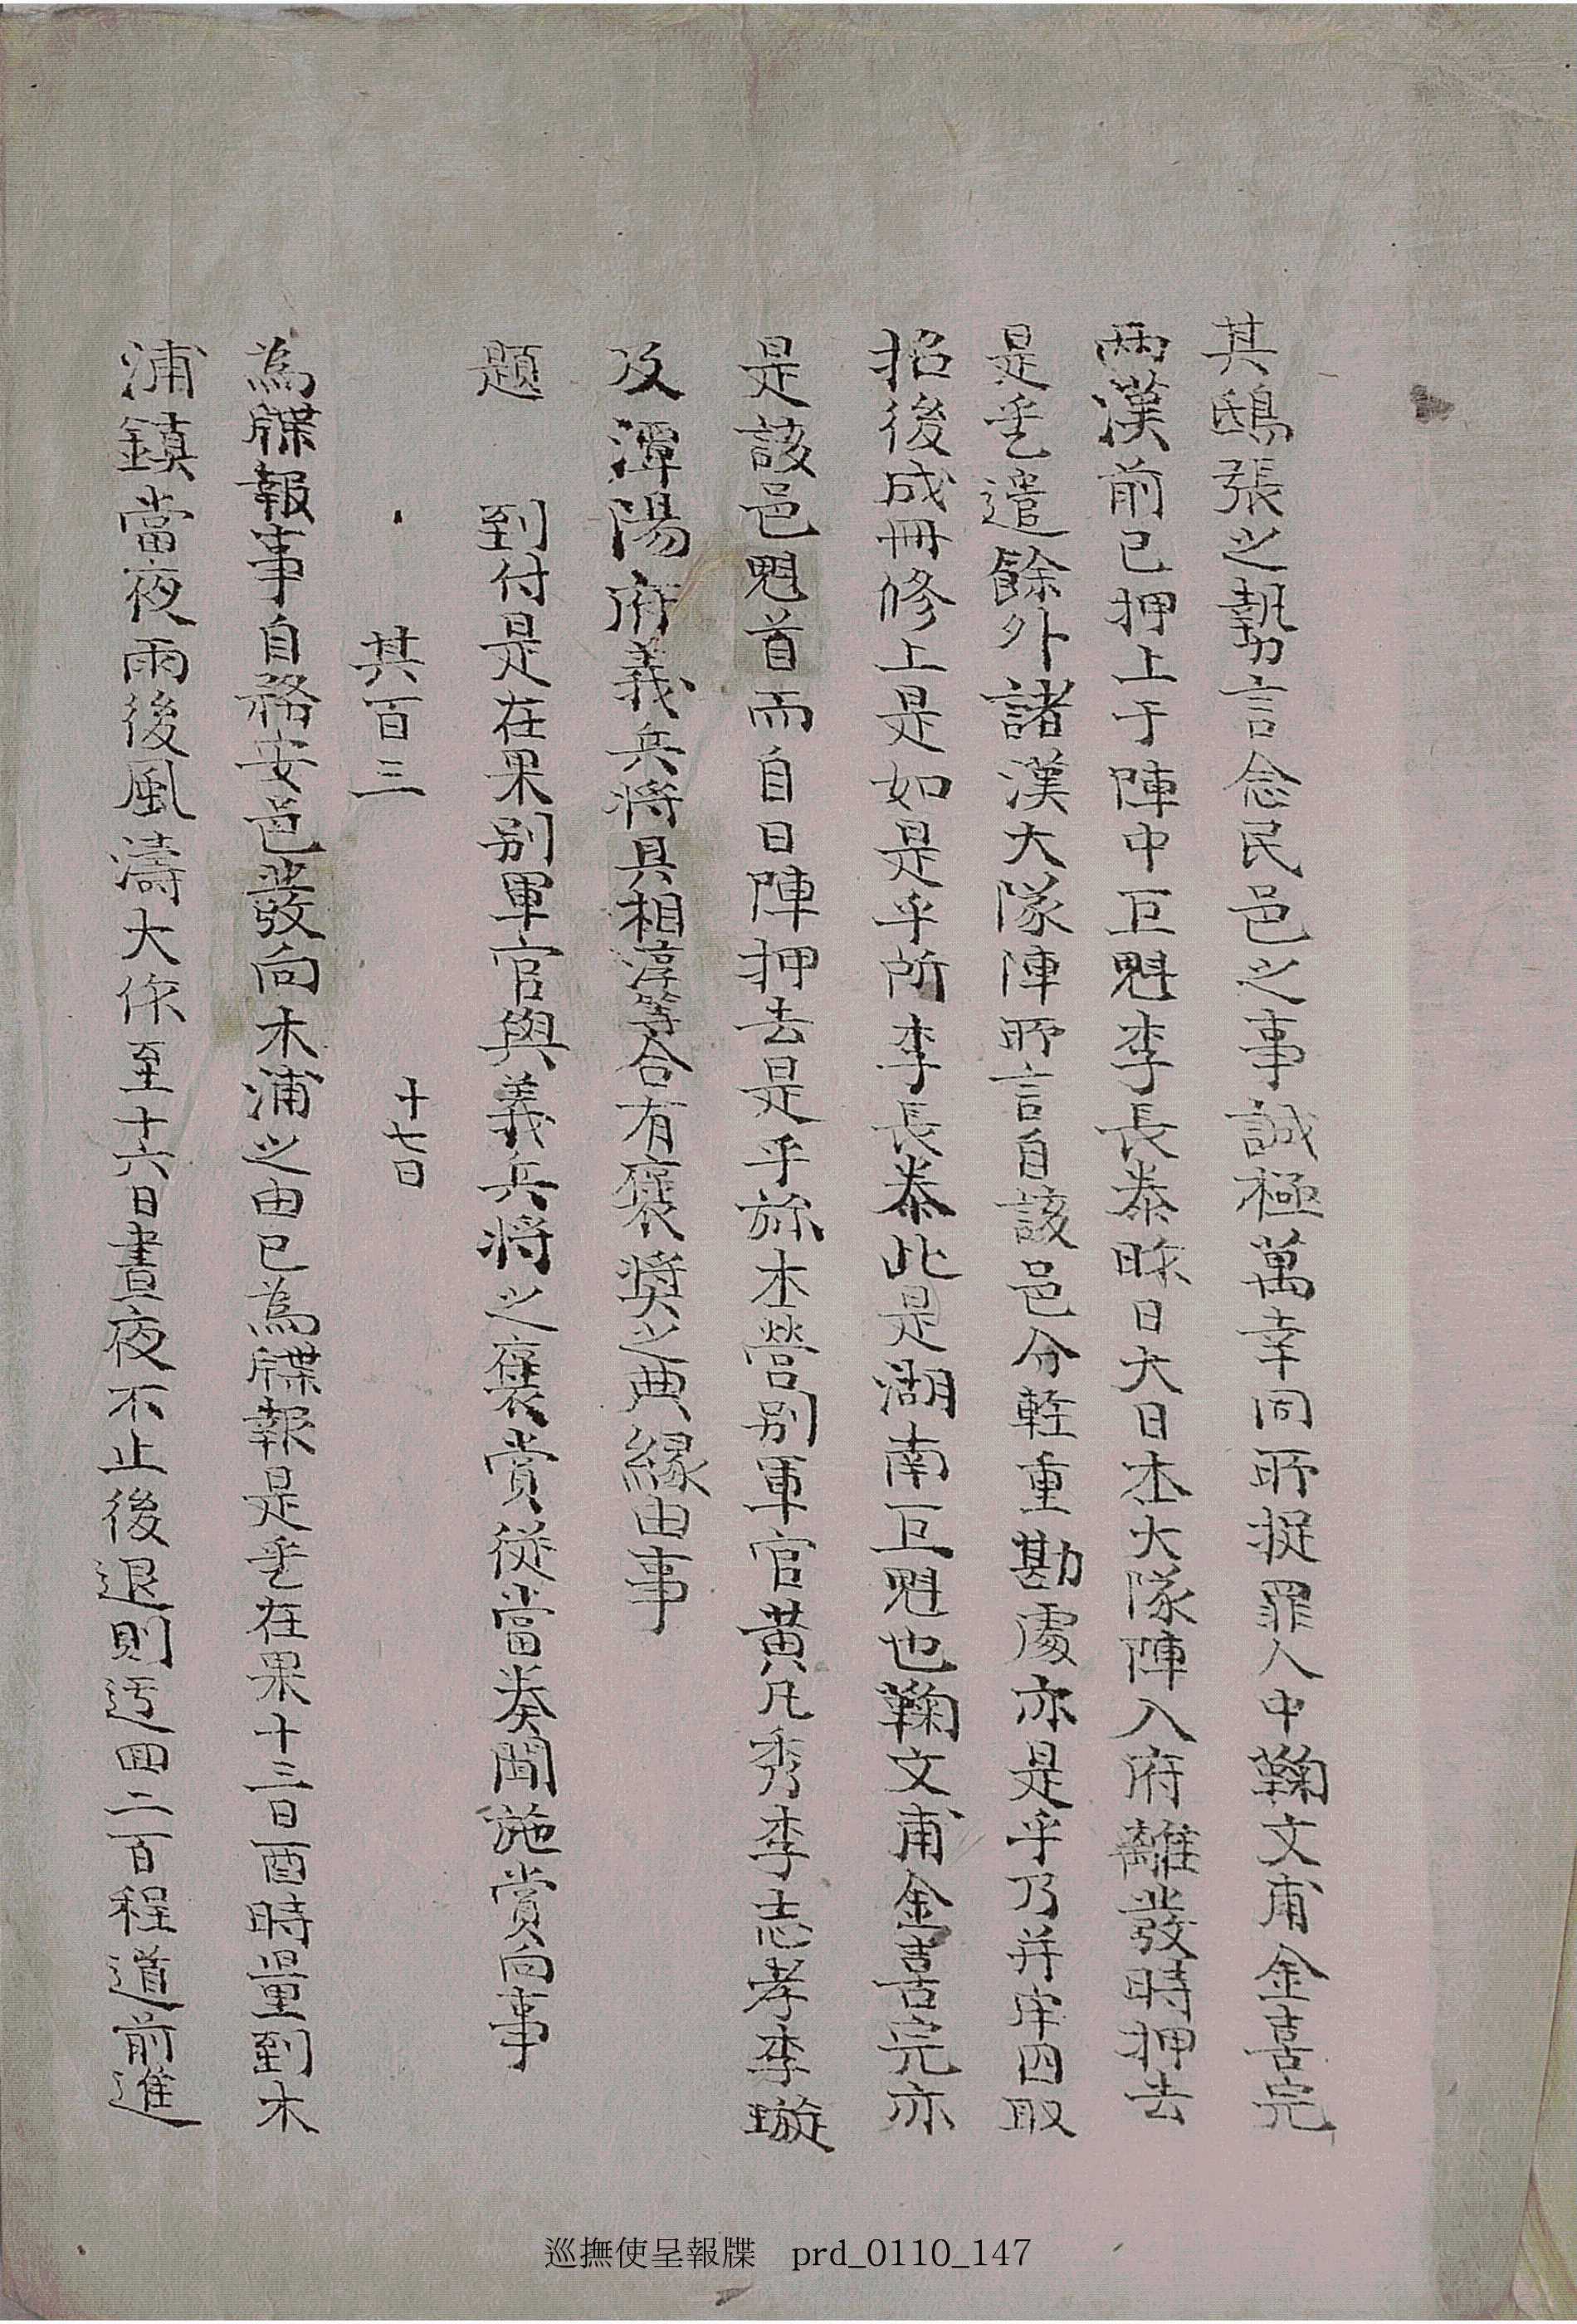 其鴟張之勢言念民邑之事誠極萬幸同所捉罪人中鞠文甫金喜完
兩漢前已押上于陣中巨魁李長泰昨日大日本大隊陣入府離發時押去
是乎遣餘外諸漢大隊陣所言自該邑分輕重勘處亦是乎乃并牢囚取
招後成冊修上是如是乎所李長泰此是湖南巨魁也鞠文甫金喜完亦
是該邑魁首而自日陣押去是乎㫆本營別軍官黃凡秀李志孝李璇
及潭陽府義兵將具相淳等合有褒奬之典緣由事
題 到付是在果別軍官與義兵將之褒賞從當奏聞施賞向事
其百三 十七日
為牒報事自務安邑發向木浦之由已為牒報是乎在果十三日酉時量到木
浦鎮當夜雨後風濤大作至十六日晝夜不止後退則迃回二百程道前進
巡撫使呈報牒 prd_0110_147